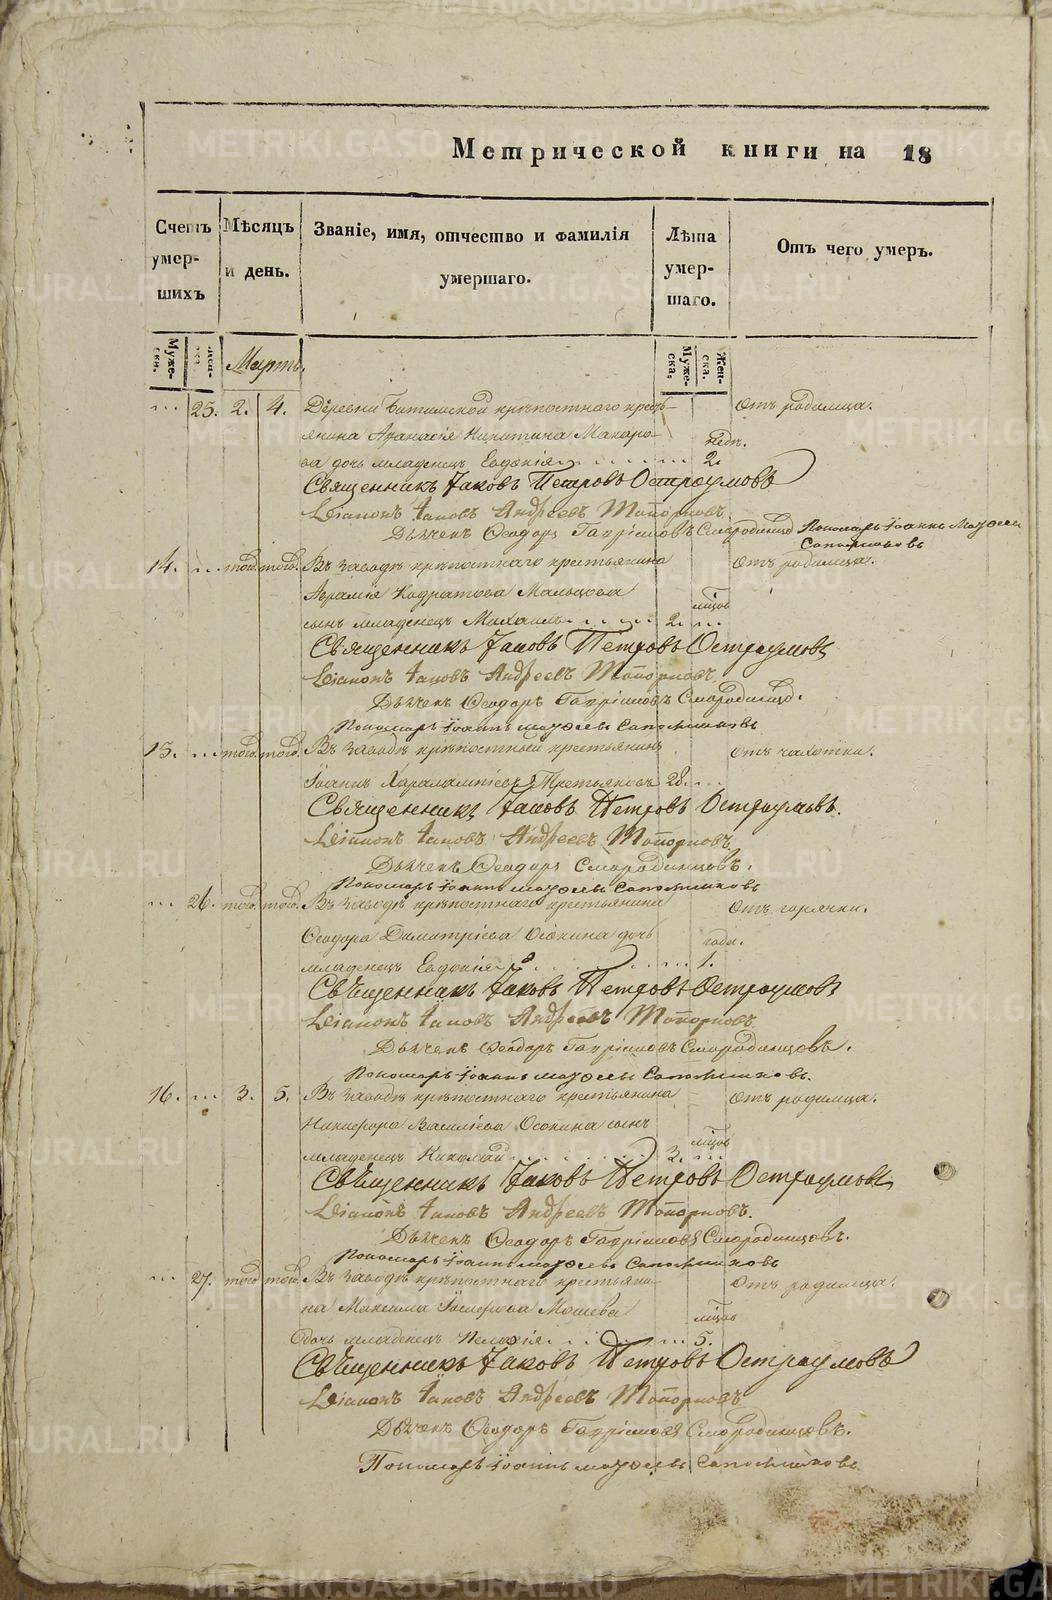 Метрической книги на 18
Счетъ умершихъ
Мѣсяцъ и день.
Званіе, имя, отчество и фамилія умершаго.
Лѣта умершаго.
Отъ чего умеръ.
Муже-ска.
Муже-ска.
Жен-ска.
Мартъ.
25. 2. 4. Деревни крѣпостнаго кресть- Отъ родимца.
янина Аѳанасія Никитина Макаро- недѣ.
ва дочь младенецъ Евдокія 2.
Священникъ Іаковъ Петровъ Остроумовъ
Діаконъ Іаковъ Андреевъ Топорковъ.
Дьячекъ Ѳеодоръ Гавріиловъ Смородинцовъ Пономарь Іоаннъ Моѵсеевъ
Сапожниковъ
14. того. того. Въ заводѣ крѣпостнаго крестьянина Отъ родимца.
Аврамія Кодратова Мальцова мѣсяцовъ
сынъ младенецъ Михаилъ 2.
Священникъ Іаковъ Петровъ Остроумовъ
Діаконъ Іаковъ Андреевъ Топорковъ.
Дьячекъ Ѳеодоръ Гавріиловъ Смородинцовъ.
Пономарь Іоаннъ Моѵсеевъ Сапожниковъ
15. того. того. Въ заводѣ крѣпостный крестьянинъ Отъ чахотки.
Іоаннъ Харалампіевъ Третьяковъ 28.
Священникъ Іаковъ Петровъ Остроумовъ.
Діаконъ Іаковъ Андреевъ Топорковъ.
Дьячекъ Ѳеодоръ Смородинцовъ.
Пономарь Іоаннъ Моѵсеевъ Сапожниковъ
26. того. того. Въ заводѣ крѣпостнаго крестьянина Отъ горячки.
Ѳеодора Димитріева дочь года.
младенецъ Евдокія 1.
Священникъ Іаковъ Петровъ Остроумовъ
Діаконъ Іаковъ Андреевъ Топорковъ.
Дьячекъ Ѳеодоръ Гавріиловъ Смородинцовъ.
Пономарь Іоаннъ Моѵсеевъ Сапожниковъ.
16. 3. 5. Въ заводѣ крѣпостнаго крестьянина Отъ родимца.
Никифора Василіева Осокина сынъ мѣсяцовъ
младенецъ Николай 3.
Священникъ Іаковъ Петровъ Остроумовъ
Діаконъ Іаковъ Андреевъ Топорковъ.
Дьячекъ Ѳеодоръ Гавріиловъ Смородинцовъ.
Пономарь Іоаннъ Моѵсеевъ Сапожниковъ
27. того того. Въ заводѣ крѣпостнаго крестьяни- Отъ родимца.
на Максима Мошева мѣсяцовъ
дочь младенецъ Пелагія 5.
Священникъ Іаковъ Петровъ Остроумовъ
Діаконъ Іаковъ Андреевъ Топорковъ.
Дьячекъ Ѳеодоръ Гавріиловъ Смородинцовъ.
Пономарь Іоаннъ Моѵсеевъ Сапожниковъ.
METRIKI.GASO-URAL.RU